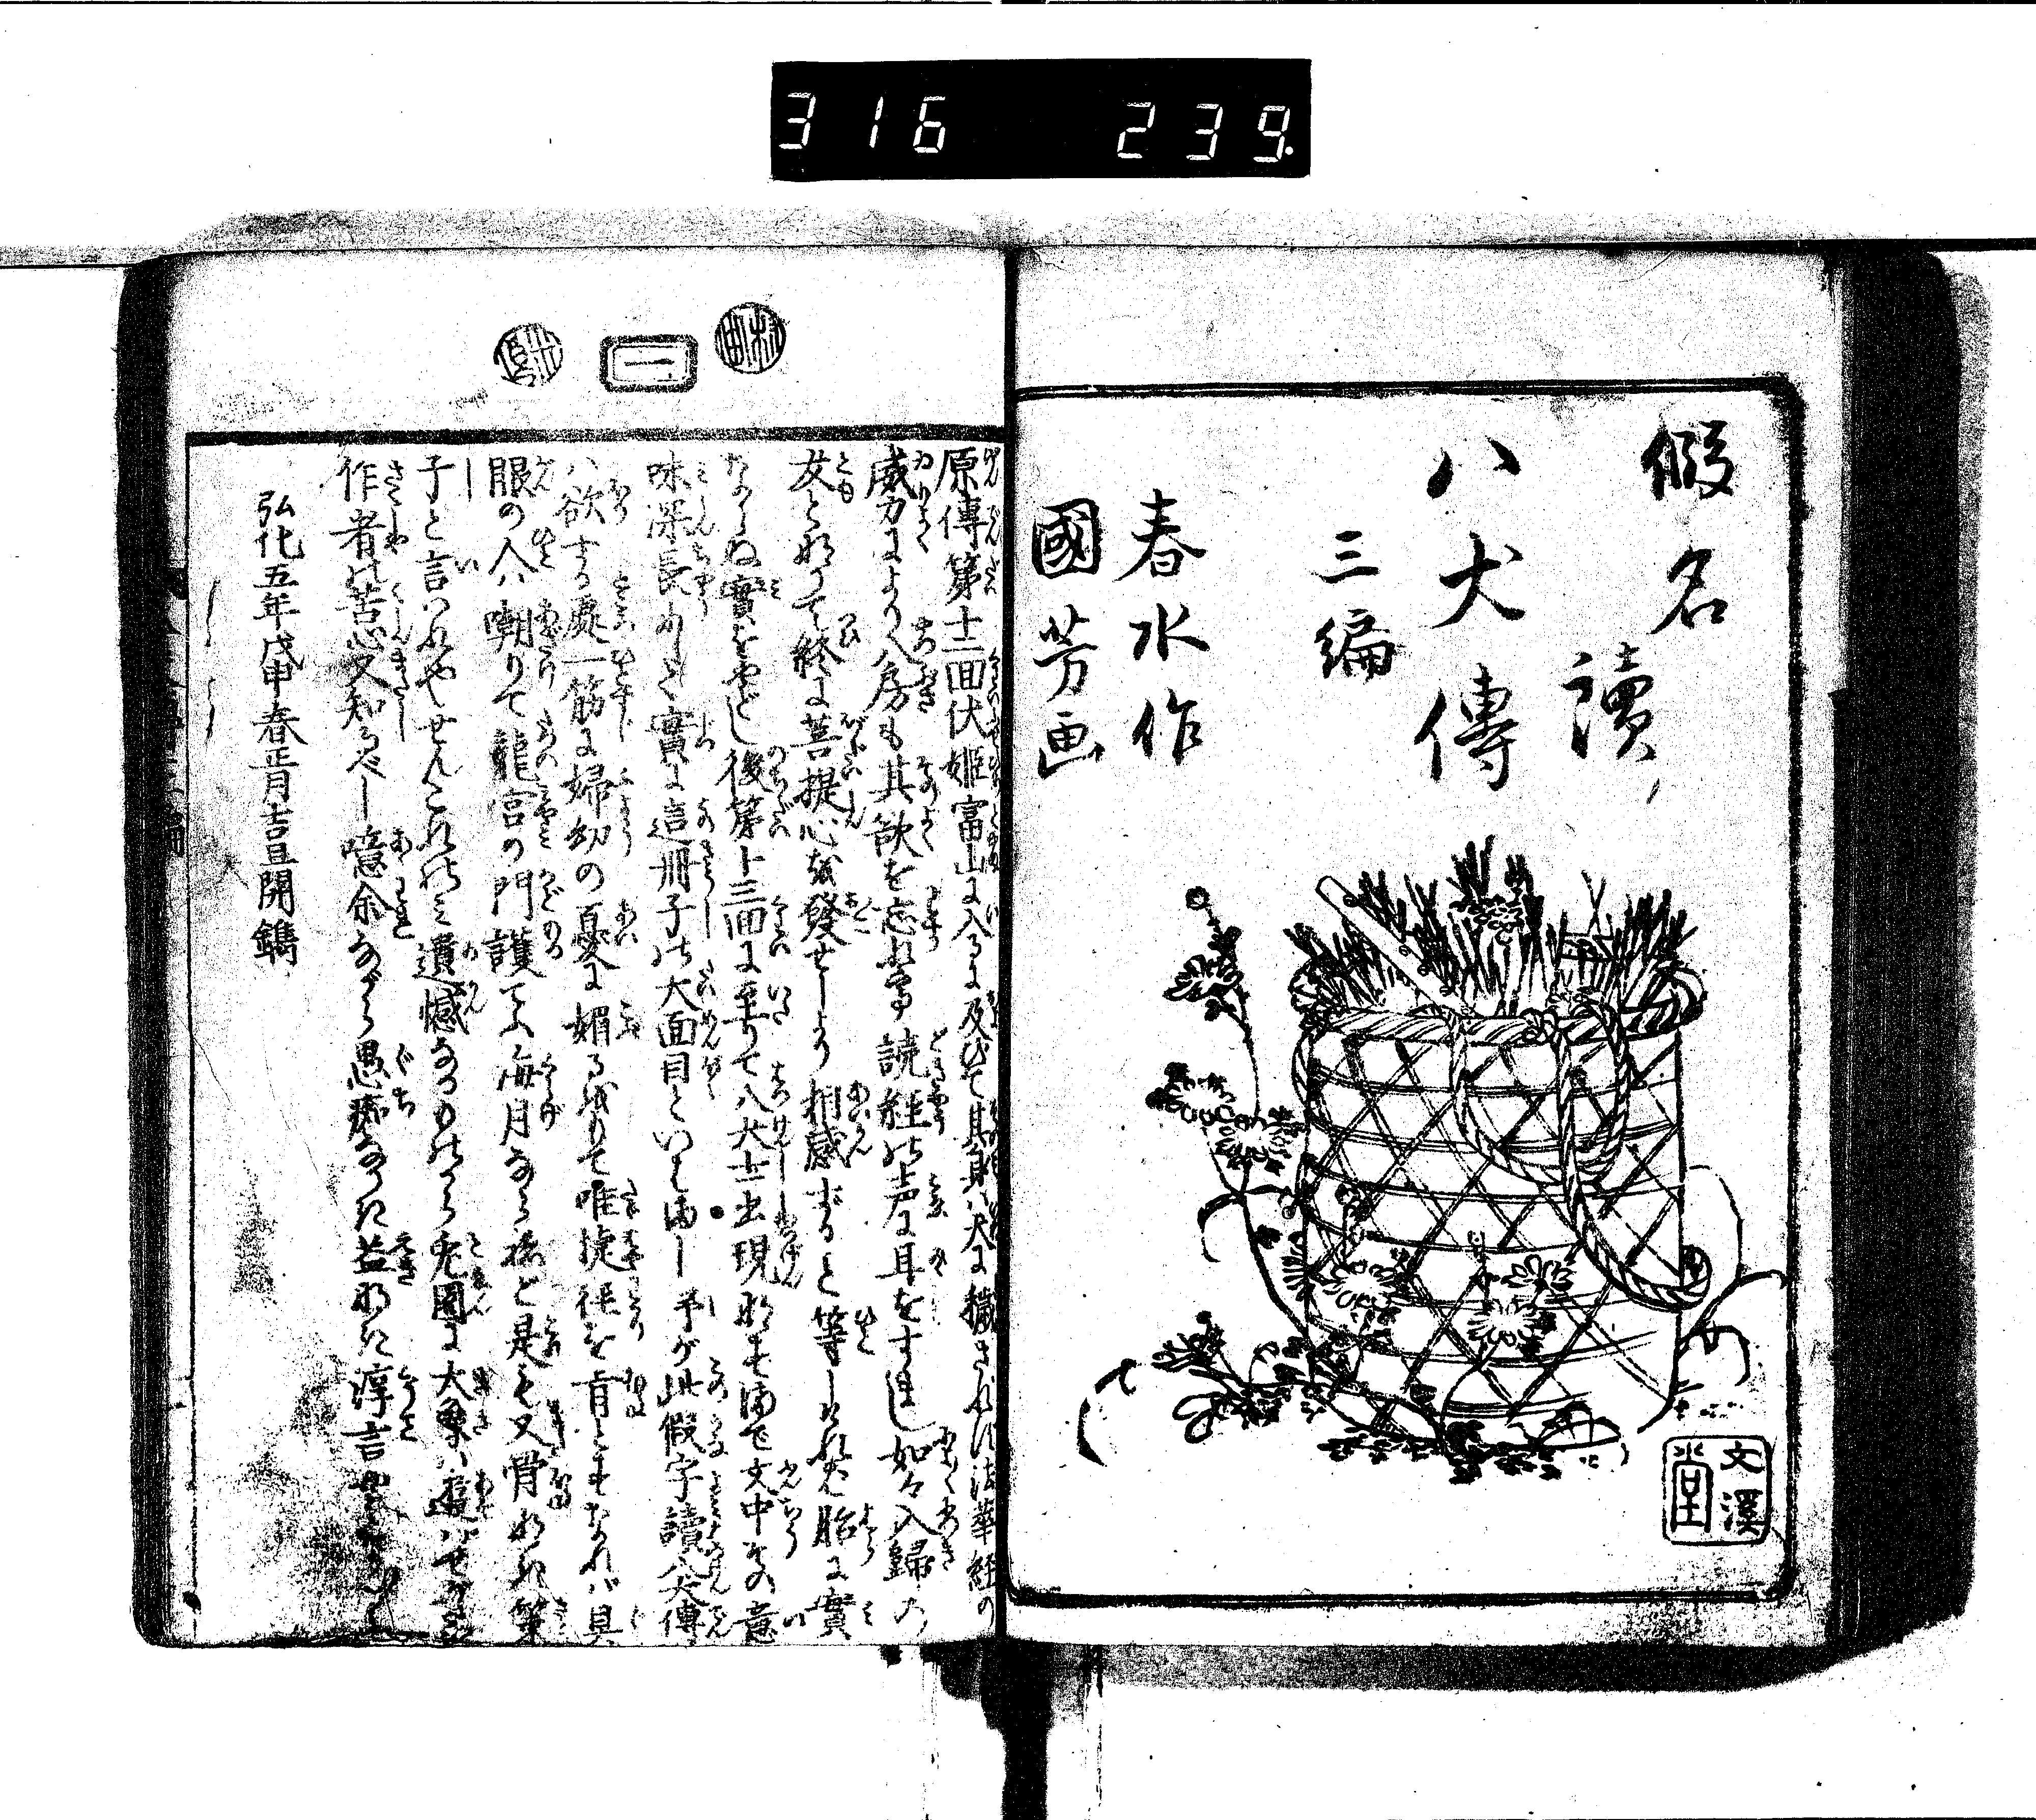 316 239.
假名
讀
八犬傳
三編
春水作
國芳画
文溪
堂
一
原傳第十二回伏姫富山に入るに及びて其身は犬に穢されねど法華経の
威力によりて八房も其欲を忘れ常に読経の声に耳をすまし如是入歸の
女となりて終に菩提心を發せしより相感ずると等しければ胎に實
ならぬ實をやどし後第十三回に至りて八犬士出現なすまで文中その意
味深長にして實に這冊子の大面目といふべし予が此假字讀八犬傳
ハ欲する處一筋に婦幼の愛に媚るをもて唯捷徑を旨とすなれバ具
眼の人ハ嘲りて龍宮の門護てふ海月ならねど是も又骨なしの策
子と言れやせんこれのミ遺憾なるものから兎園に大象ハ遊バせがたき
作者の苦心又知るべし噫余ながら愚癡なりき益なき諄言
弘化五年戊申春正月吉旦開鐫